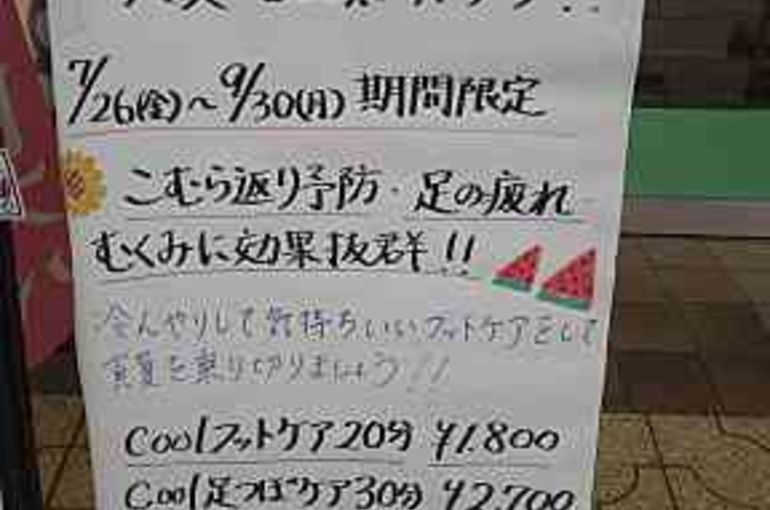 7/26(金)~9/30(月)期間限定
こむら返り予防・足の疲れ
むくみに効果抜群!!
冷んやりして気持ちいいフットケアをして
真夏を乗り切りましょう!!
Coolフットケア20分 ¥1.800
Cool足つぼケア30分 ¥2.700